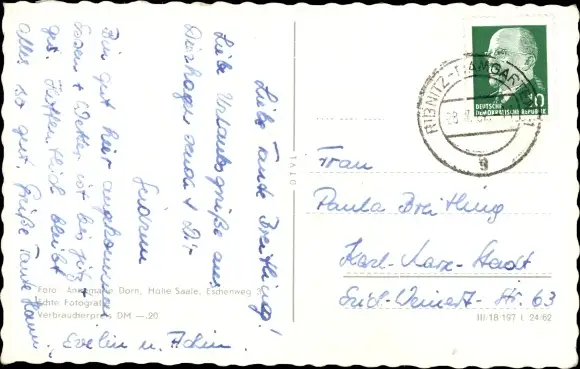 Liebe Tante Breitling!
Liebe Urlaubsgrüße aus
Dierhagen sendet Dir
Gudrun
Bin gut hier angekommen
Essen + Wetter ist bis jetzt
gut. Hoffentlich bleibt
alles so gut. Grüße Tante Hanni,
Evelin u. Achim.
Foto: Annemarie Dorn, Halle Saale, Eschenweg 3
Echte Fotografie
Verbraucherpreis DM —,20
TAID
RIBNITZ-DAMGARTEN 1
g
DEUTSCHE
DEMOKRATISCHE REPUBLIK
Frau
Paula Breitling
Karl-Marx-Stadt
Erich-Weinert-Str. 63
III/18 197 L 24/62